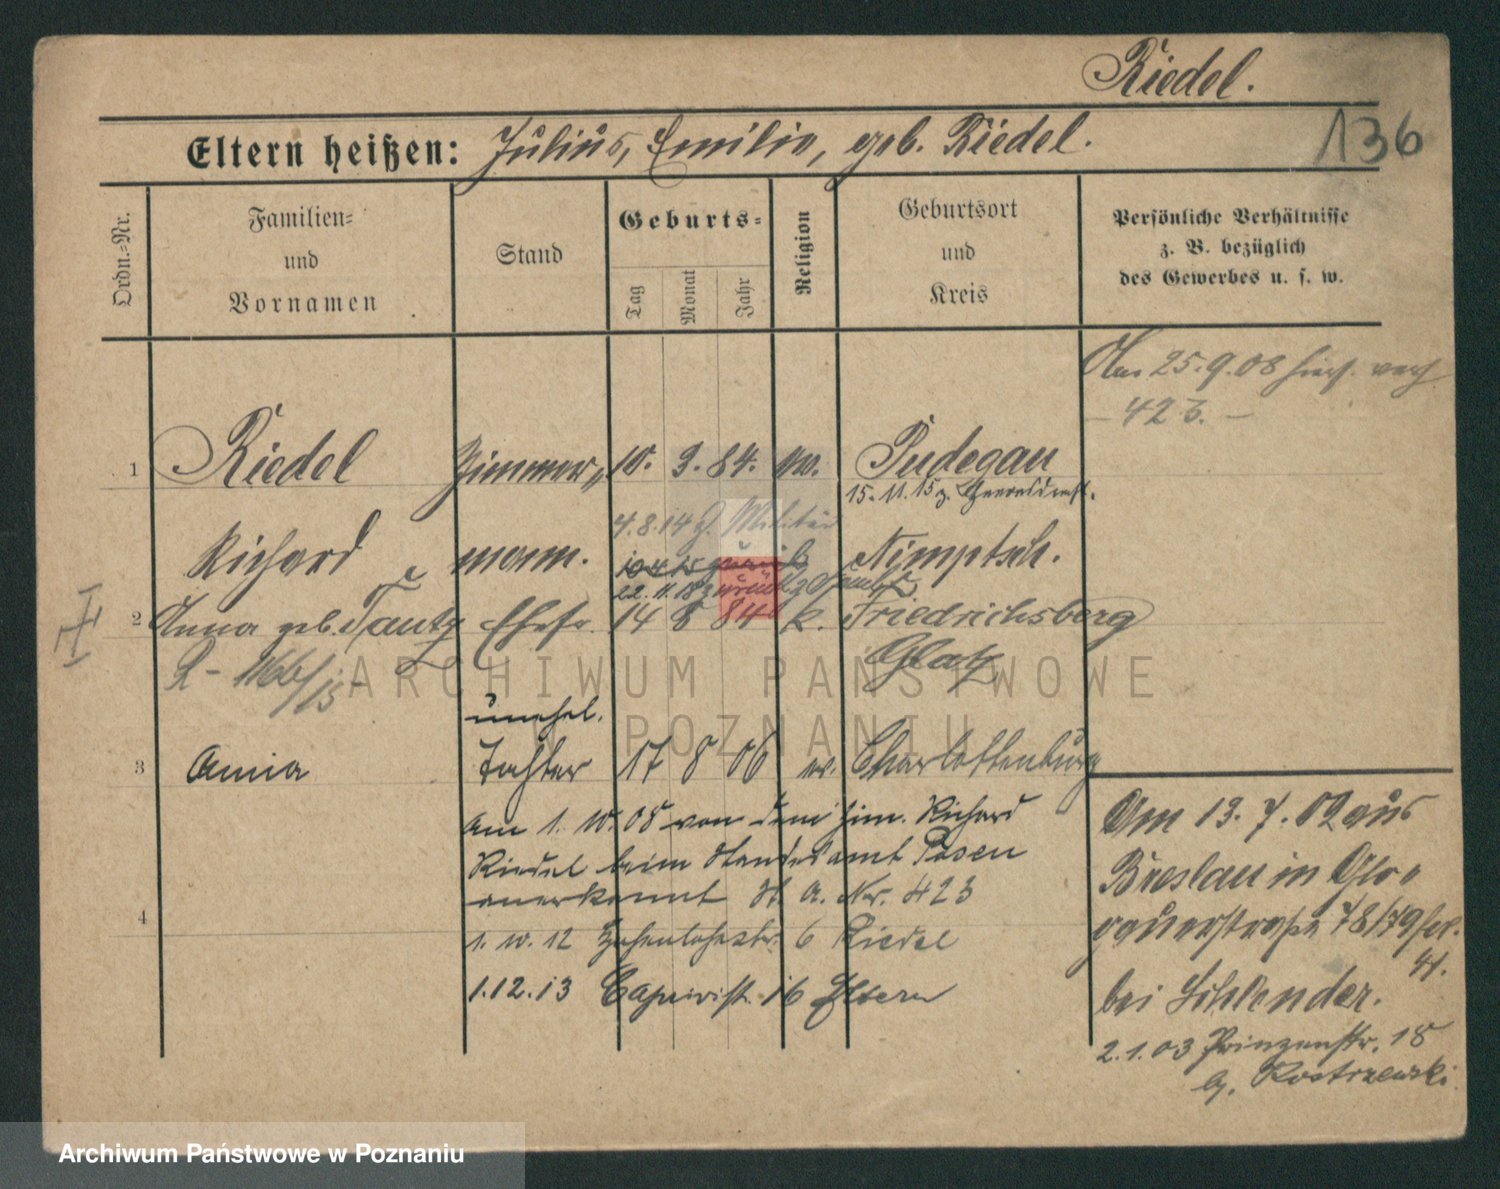 Riedel.
136
Eltern heißen: Julius, Emilie, geb. Riedel.
Ordn.=Nr.
Familien=
und
Vornamen
Stand
Geburts=
Tag
Monat
Jahr
Religion
Geburtsort
und
Kreis
Persönliche Verhältnisse
z. B. bezüglich
des Gewerbes u. s. w.
Am 25.9.08 hier. verh.
– 423. –
1 Riedel Zimmer„ 10. 3. 84. ev. Pudegau
15.11.15 z. Heeresdienst.
4.8.14 z. Militär
Richard mann. Nimptsch.
22.11.18 zurück
2 Anna geb. Tautz Ehefr. 14 8 84 k. Friedrichsberg
Glatz
unehel.
3 Anna Tochter 17 8 06 ev. Charlottenburg
am 1. 10. 08 von dem Zim. Richard
Riedel beim Standesamt Posen
anerkannt St. A. Nr. 423
4
1. 10. 12 Hohenlohestr. 6 Riedel
1.12.13 Caprivistr. 16 Eltern
Am 13. 7. 02 aus
Breslau in Glo„
gauerstraße 78/79
bei Schlender.
2.1.03 Prinzenstr. 18
b. Kostrzewski
ARCHIWUM PAŃSTWOWE
W POZNANIU
Archiwum Państwowe w Poznaniu